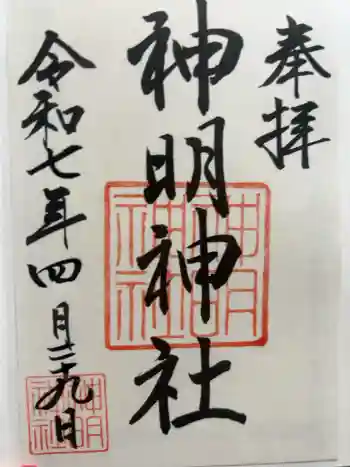 奉拝
神明神社
令和七年四月二十九日
神明神社
神明神社